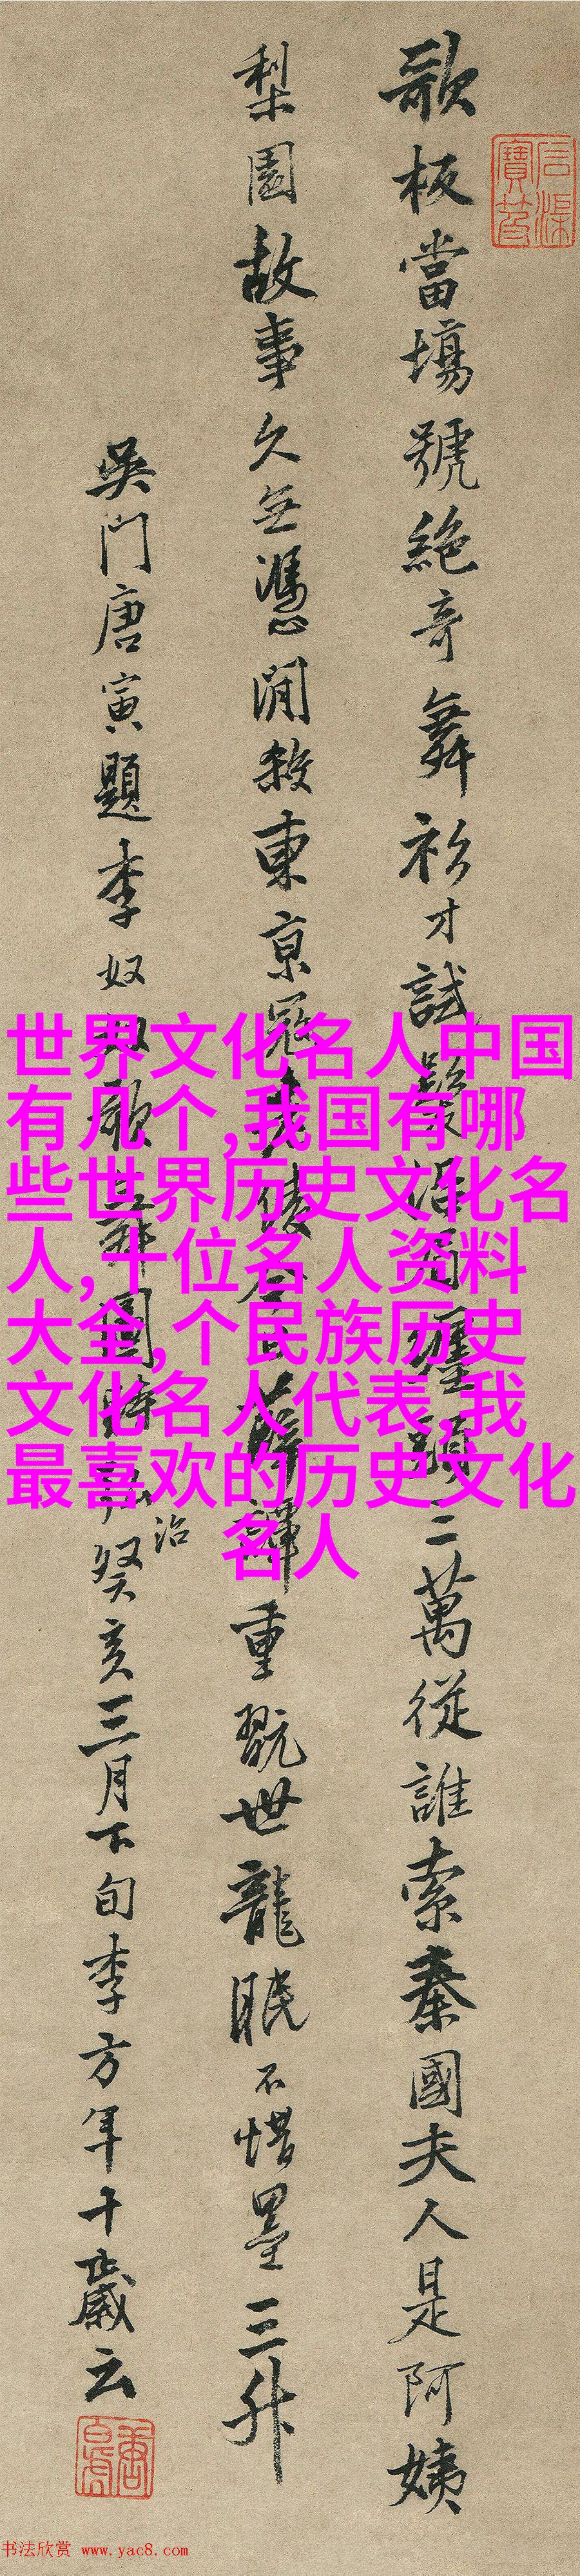 歌板當場號絶奇舞衫才試髮沿眉纏頭三萬從誰索秦國夫人是阿姨
梨園故事久無憑閒殺東京陵今日薛譚重翫世龍眠不惜墨三升
吳門唐寅題李奴奴歌舞圖時弘治癸亥三月下旬李方年十歲云
世界文化名人中国
有几个,我国有哪
些世界历史文化名
人,十位名人资料
大全,个民族历史
文化名人代表,我
最喜欢的历史文化
名人
书法欣赏 www.yac8.com